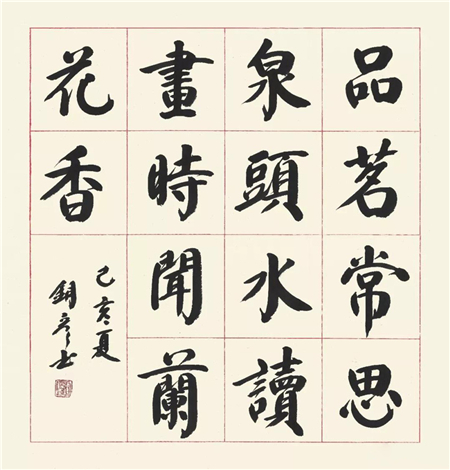 品茗常思
泉頭水讀
畫時聞蘭
花香
己亥夏
书